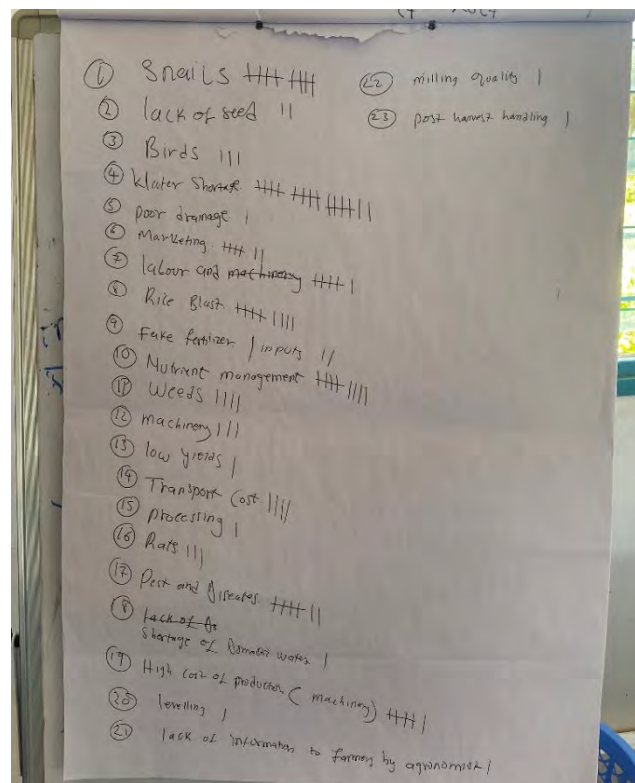 ① Snails 𝍸 𝍸
② lack of seed ||
③ Birds |||
④ Water Shortage 𝍸 𝍸 𝍸 ||
⑤ poor drainage |
⑥ Marketing 𝍸 ||
⑦ labour and machinery 𝍸 |
⑧ Rice Blast 𝍸 ||||
⑨ Fake fertilizer / inputs ||
⑩ Nutrient management 𝍸 ||||
⑪ Weeds ||||
⑫ machinery |||
⑬ low yields |
⑭ Transport Cost ||||
⑮ processing |
⑯ Rats |||
⑰ Pest and diseases 𝍸 ||
⑱ lack of
Shortage of water |
⑲ High cost of production (machinery) 𝍸 |
⑳ levelling |
㉑ lack of information to farmers by agronomist |
㉒ milling quality |
㉓ post harvest handling |